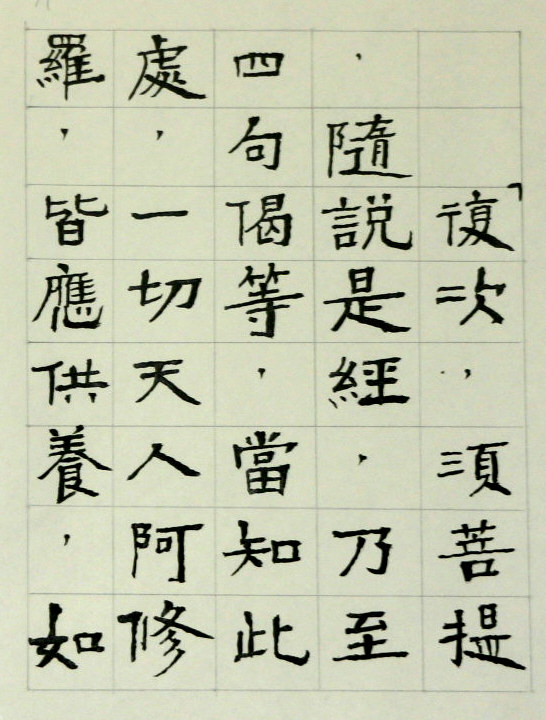 「復次，須菩提
，隨說是經，乃至
四句偈等，當知此
處，一切天人阿修
羅，皆應供養，如